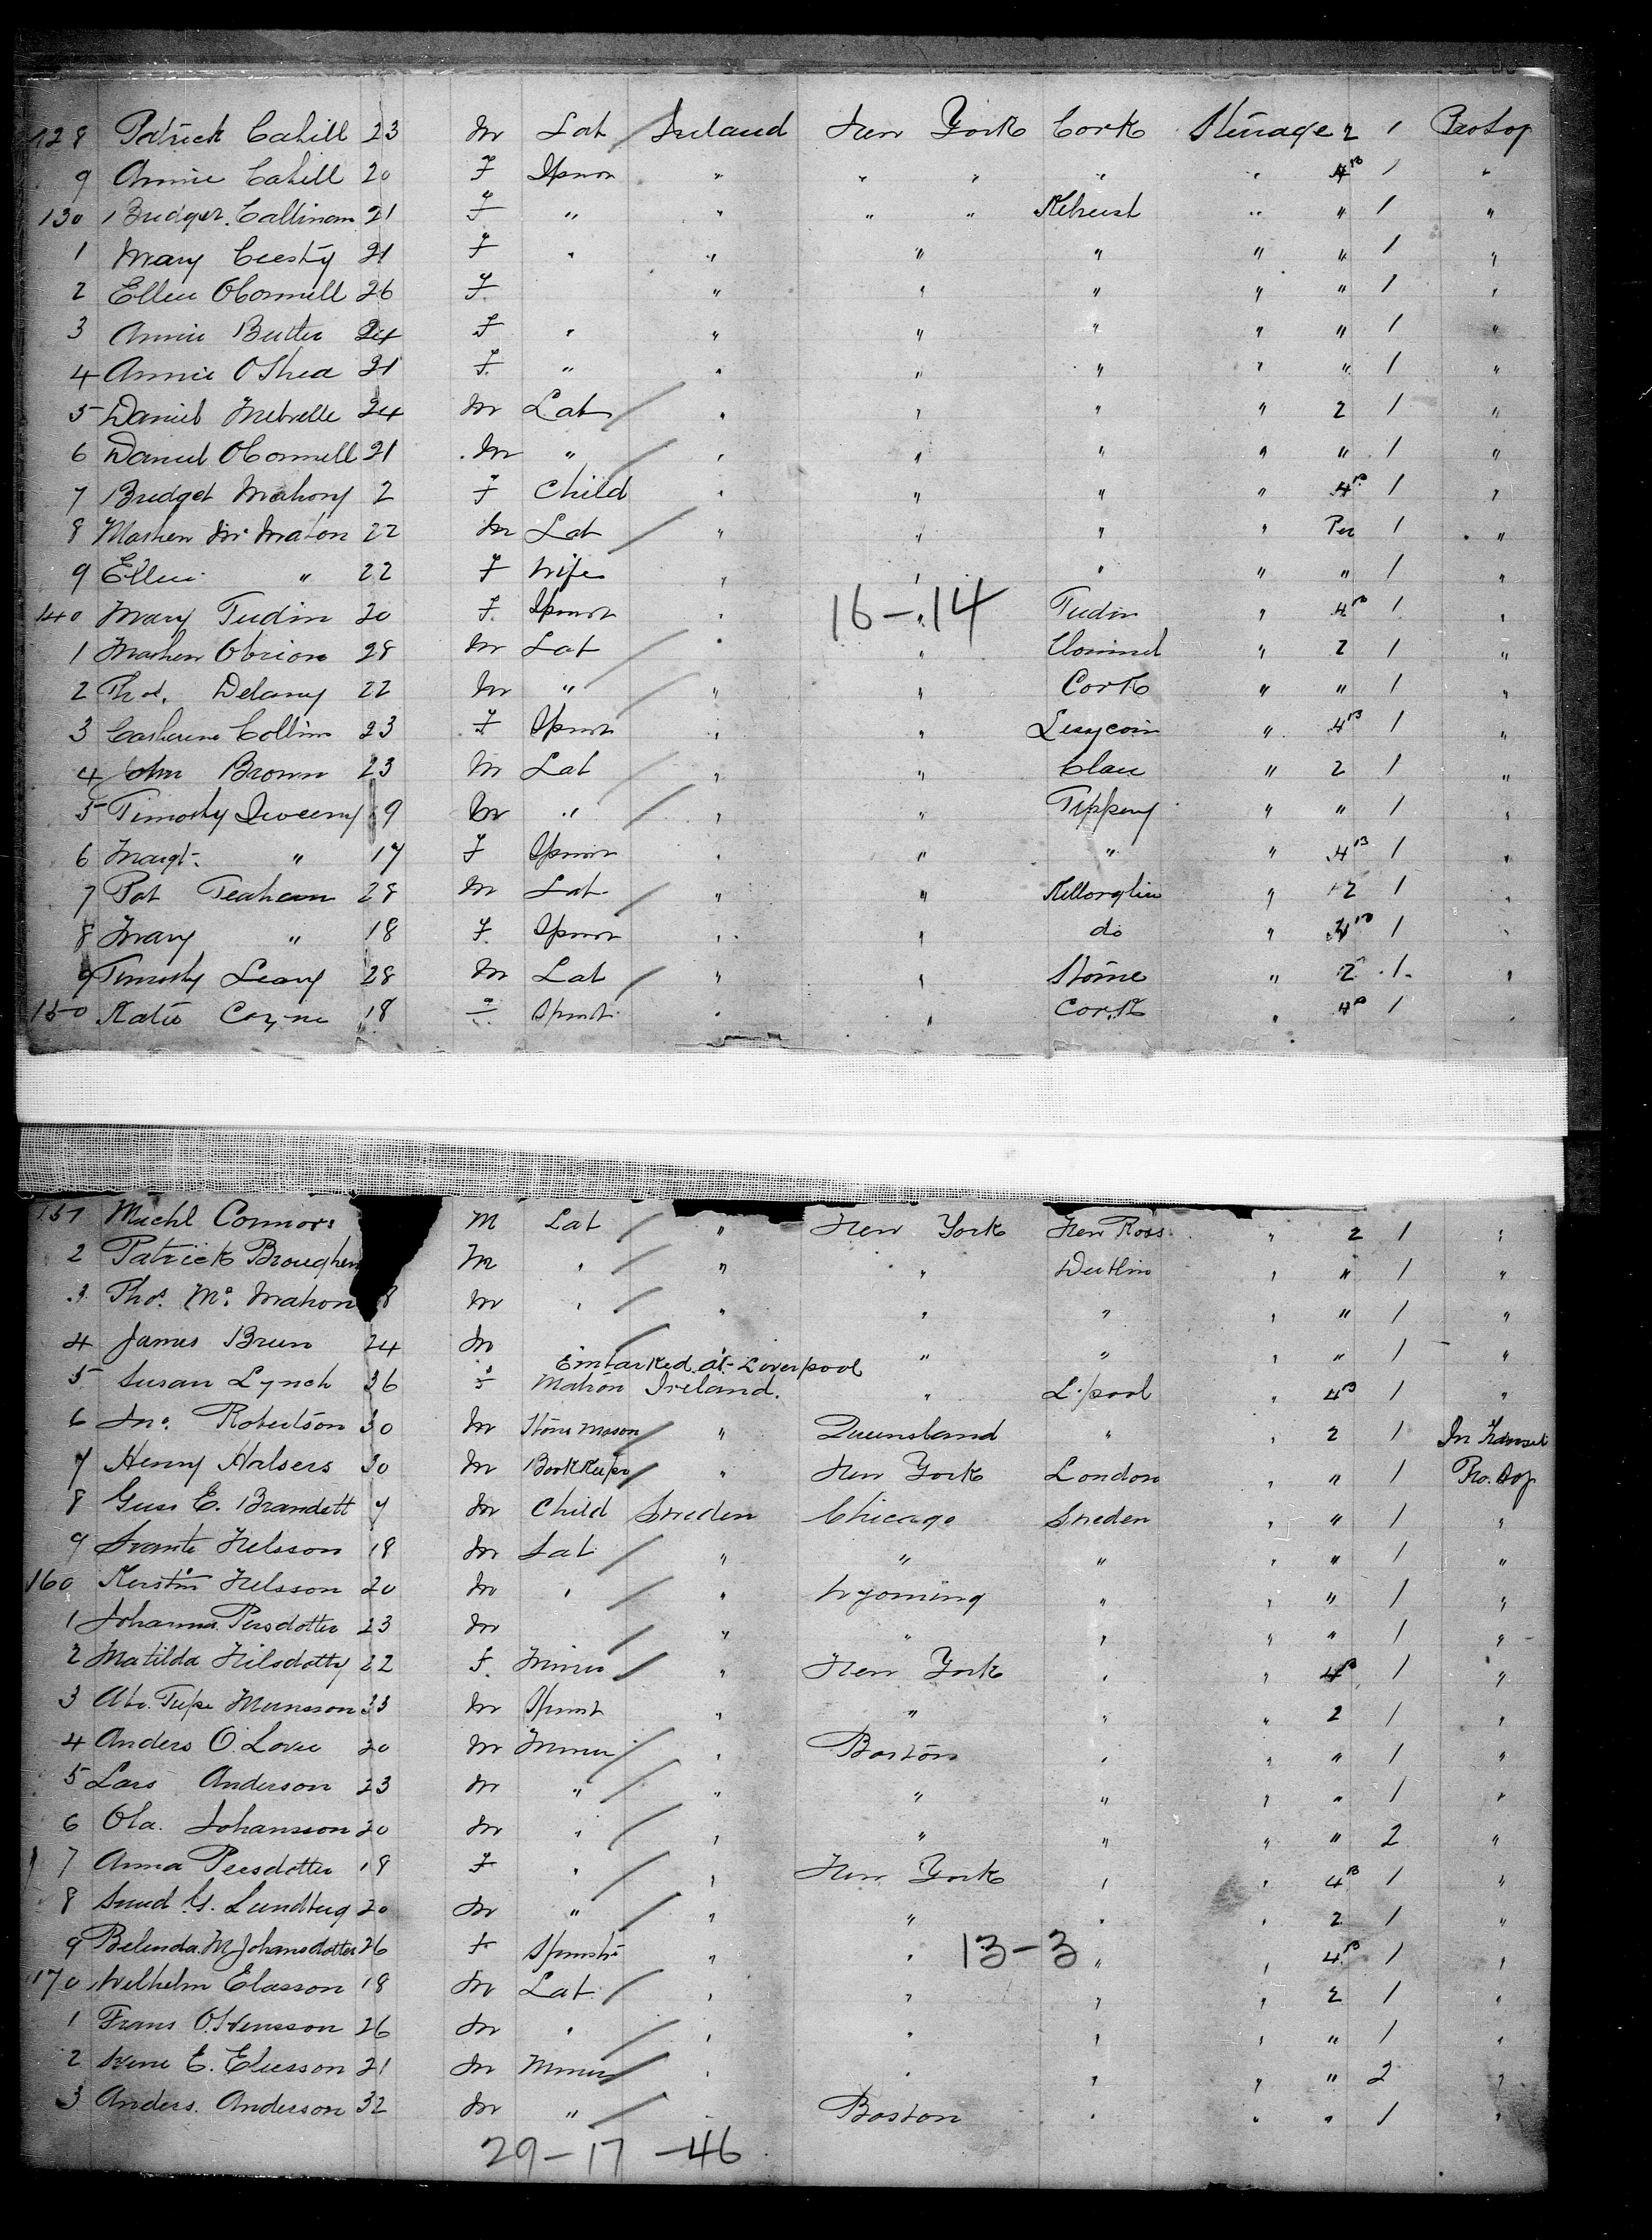 128 Patrick Cahill 23 M Lab Ireland New York Cork Steerage 2 1 Pro Soj
9 Annie Cahill 20 F Spinor " " " " " 4B 1 "
130 Bridget Callinan 21 F " " " " Kilrust " " 1 "
1 Mary 21 F " " " " " " 1 "
2 Ellen OConnell 26 F " " " " " 1 "
3 Annie Butler 24 F " " " " " " 1 "
4 Annie OShea 21 F " " " " " " 1 "
5 Daniel 24 M Lab " " " " 2 1 "
6 Daniel OConnell 21 M " " " " " " 1 "
7 Bridget Mahony 2 F Child " " " " 4B 1 "
8 Mathew Mc Mahon 22 M Lab " " " " Per 1 "
9 Ellen " 22 F Wife " " " " " 1 "
16-14
140 Mary Tudin 20 F Spinor " " Tudin " 4B 1 "
1 Mathew Obrion 28 M Lab " " Clonmel " 2 1 "
2 Thos. Delany 22 M " " " Cork " " 1 "
3 Catherine Collins 23 F Spinor " " " 4B 1 "
4 John Brown 23 M Lab " " Clare " 2 1 "
5 Timothy Sweeny 19 M " " " Tippery " " 1 "
6 Margt. " 17 F Spinor " " " " 4B 1 "
7 Pat Teahan 28 M Lab " " Killorglin " 2 1 "
8 Mary " 18 F Spinor " " do " 4B 1 "
9 Timothy Leary 28 M Lab " " Stone " 2 1 "
150 Katie Coyne 18 F Spinst " " Cork " 4B 1 "
151 Michl Connors M Lab " New York New Ross " 2 1 "
2 Patrick Broughen M " " " Dublin " " 1 "
3 Thos. Mc Mahon 8 M " " " " " " 1 "
4 James Breen 24 M " " " " 1 "
Embarked at Liverpool
5 Susan Lynch 36 F Matron Ireland. " L.pool " 4B 1 "
6 Jno. Robertson 30 M Stone Mason " Queensland " " 2 1 In Transit
7 Henry Halsers 30 M Book Keeper " New York London " " 1 Pro. Soj
8 Guss E. Brandett 7 M Child Sweden Chicago Sweden " " 1 "
9 Svante Nelsson 18 M Lab " " " " " 1 "
160 Kerstin Nelsson 20 M " " Wyoming " " " 1 "
1 Johanna Persdotter 23 M " " " " " 1 "
2 Matilda Nilsdotty 22 F. Miner " New York " " 4B 1 "
3 Munsson 33 M Spinst " " " " 2 1 "
4 Anders O. Love 20 M Miner " Boston " " " 1 "
5 Lars Anderson 23 M " " " " " " 1 "
6 Ola. Johansson 20 M " " " " " " 2 "
7 Anna Persdotter 19 F " " New York " " 4B 1 "
8 G. Lundberg 20 M " " " " " 2 1 "
13-3
9 Belinda. M Johansdotter 26 F Spinster " " " " 4B 1 "
170 Wilhelm Elasson 18 M Lab " " " " 2 1 "
1 Frans O. Svensson 26 M " " " " " " 1 "
2 Svene E. Eliesson 21 M Miner " " " " " 2 "
3 Anders. Anderson 32 M " " Boston " " " 1 "
29-17-46